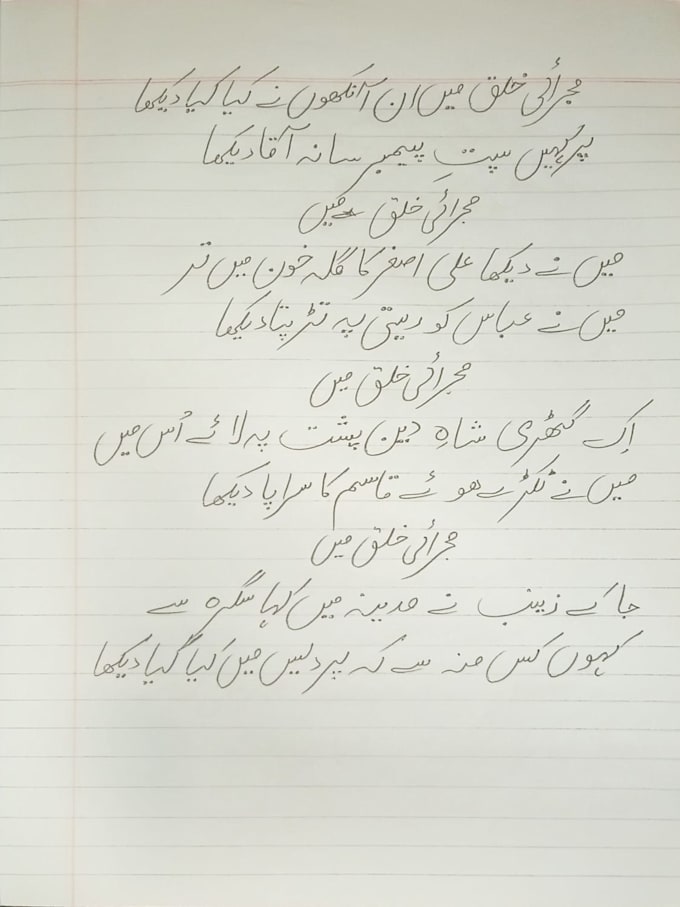 مجرائی خلق میں ان آنکھوں نے کیا کیا دیکھا
پر کہیں سبتِ پیمبر سا نہ آقا دیکھا
مجرائی خلق میں
میں نے دیکھا علی اصغر کا گلہ خون میں تر
میں نے عباس کو ریتی پہ تڑپتا دیکھا
مجرائی خلق میں
اِک گٹھڑی شاہِ دین پشت پہ لائے اُس میں
میں نے ٹکڑے ہوئے قاسم کا سراپا دیکھا
مجرائی خلق میں
جا کے زینب نے مدینہ میں کہا سگرہ سے
کہوں کس منہ سے کہ پردیس میں کیا کیا دیکھا